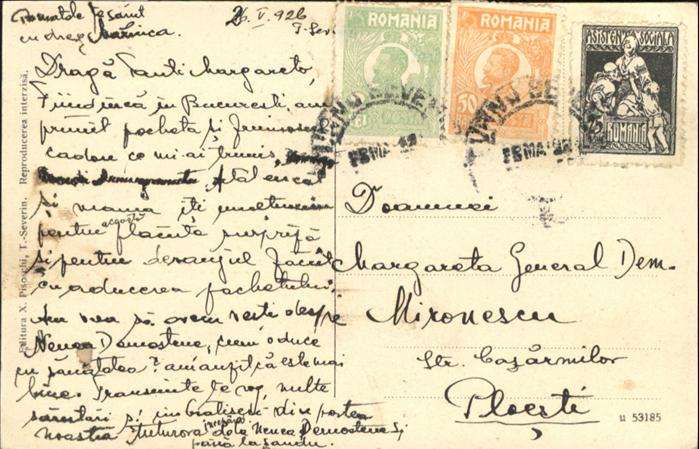 26.V.926
T-Sev
cu drag
Dragă Tanti Margareto,
Fiindcă în București, am
primit pocheta și frumosu
cadou ce mi-ai trimis,
Atât eu cât
și mama îți mulțumim
pentru această plăcută surpriză
și pentru deranjul făcut
cu aducerea pachetului.
Am vrea să avem vești despre
Nenea Demostene, cum o duce
cu sănătatea? am auzit că este mai
bine. Transmite te rog multe
sărutări și îmbrățișeri din partea
noastră tuturora începând dela Nenea Demostene și
până la Sandu.
Editura X. Pisochi, T.-Severin. Reproducerea interzisă.
ROMANIA
ROMANIA
50
ASISTENȚA SOCIALA
25
ROMANIEI
TURNU SEVERIN
Doamnei
Margareta General Dem.
Mironescu
Str. Cazărmilor
Ploești
u 53185